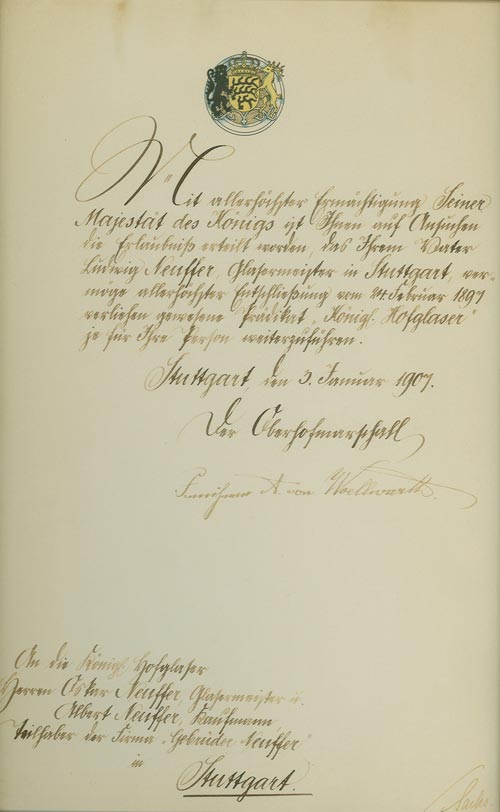 Mit allerhöchster Ermächtigung Seiner
Majestät des Königs ist Ihnen auf Ansuchen
die Erlaubniß erteilt worden, das Ihrem Vater
Ludwig Neuffer, Glasermeister in Stuttgart, ver-
möge allerhöchster Entschließung vom Februar 1897
verliehen gewesene Prädikat „Königl. Hofglaser"
je für Ihre Person weiterzuführen.
Stuttgart den 3. Januar 1907.
Der Oberhofmarschall
Freiherr A. von Woellwarth
An die Königl. Hofglaser
Herren Oskar Neuffer, Glasermeister u.
Albert Neuffer, Kaufmann
Teilhaber der Firma „Gebrüder Neuffer"
in
Stuttgart.